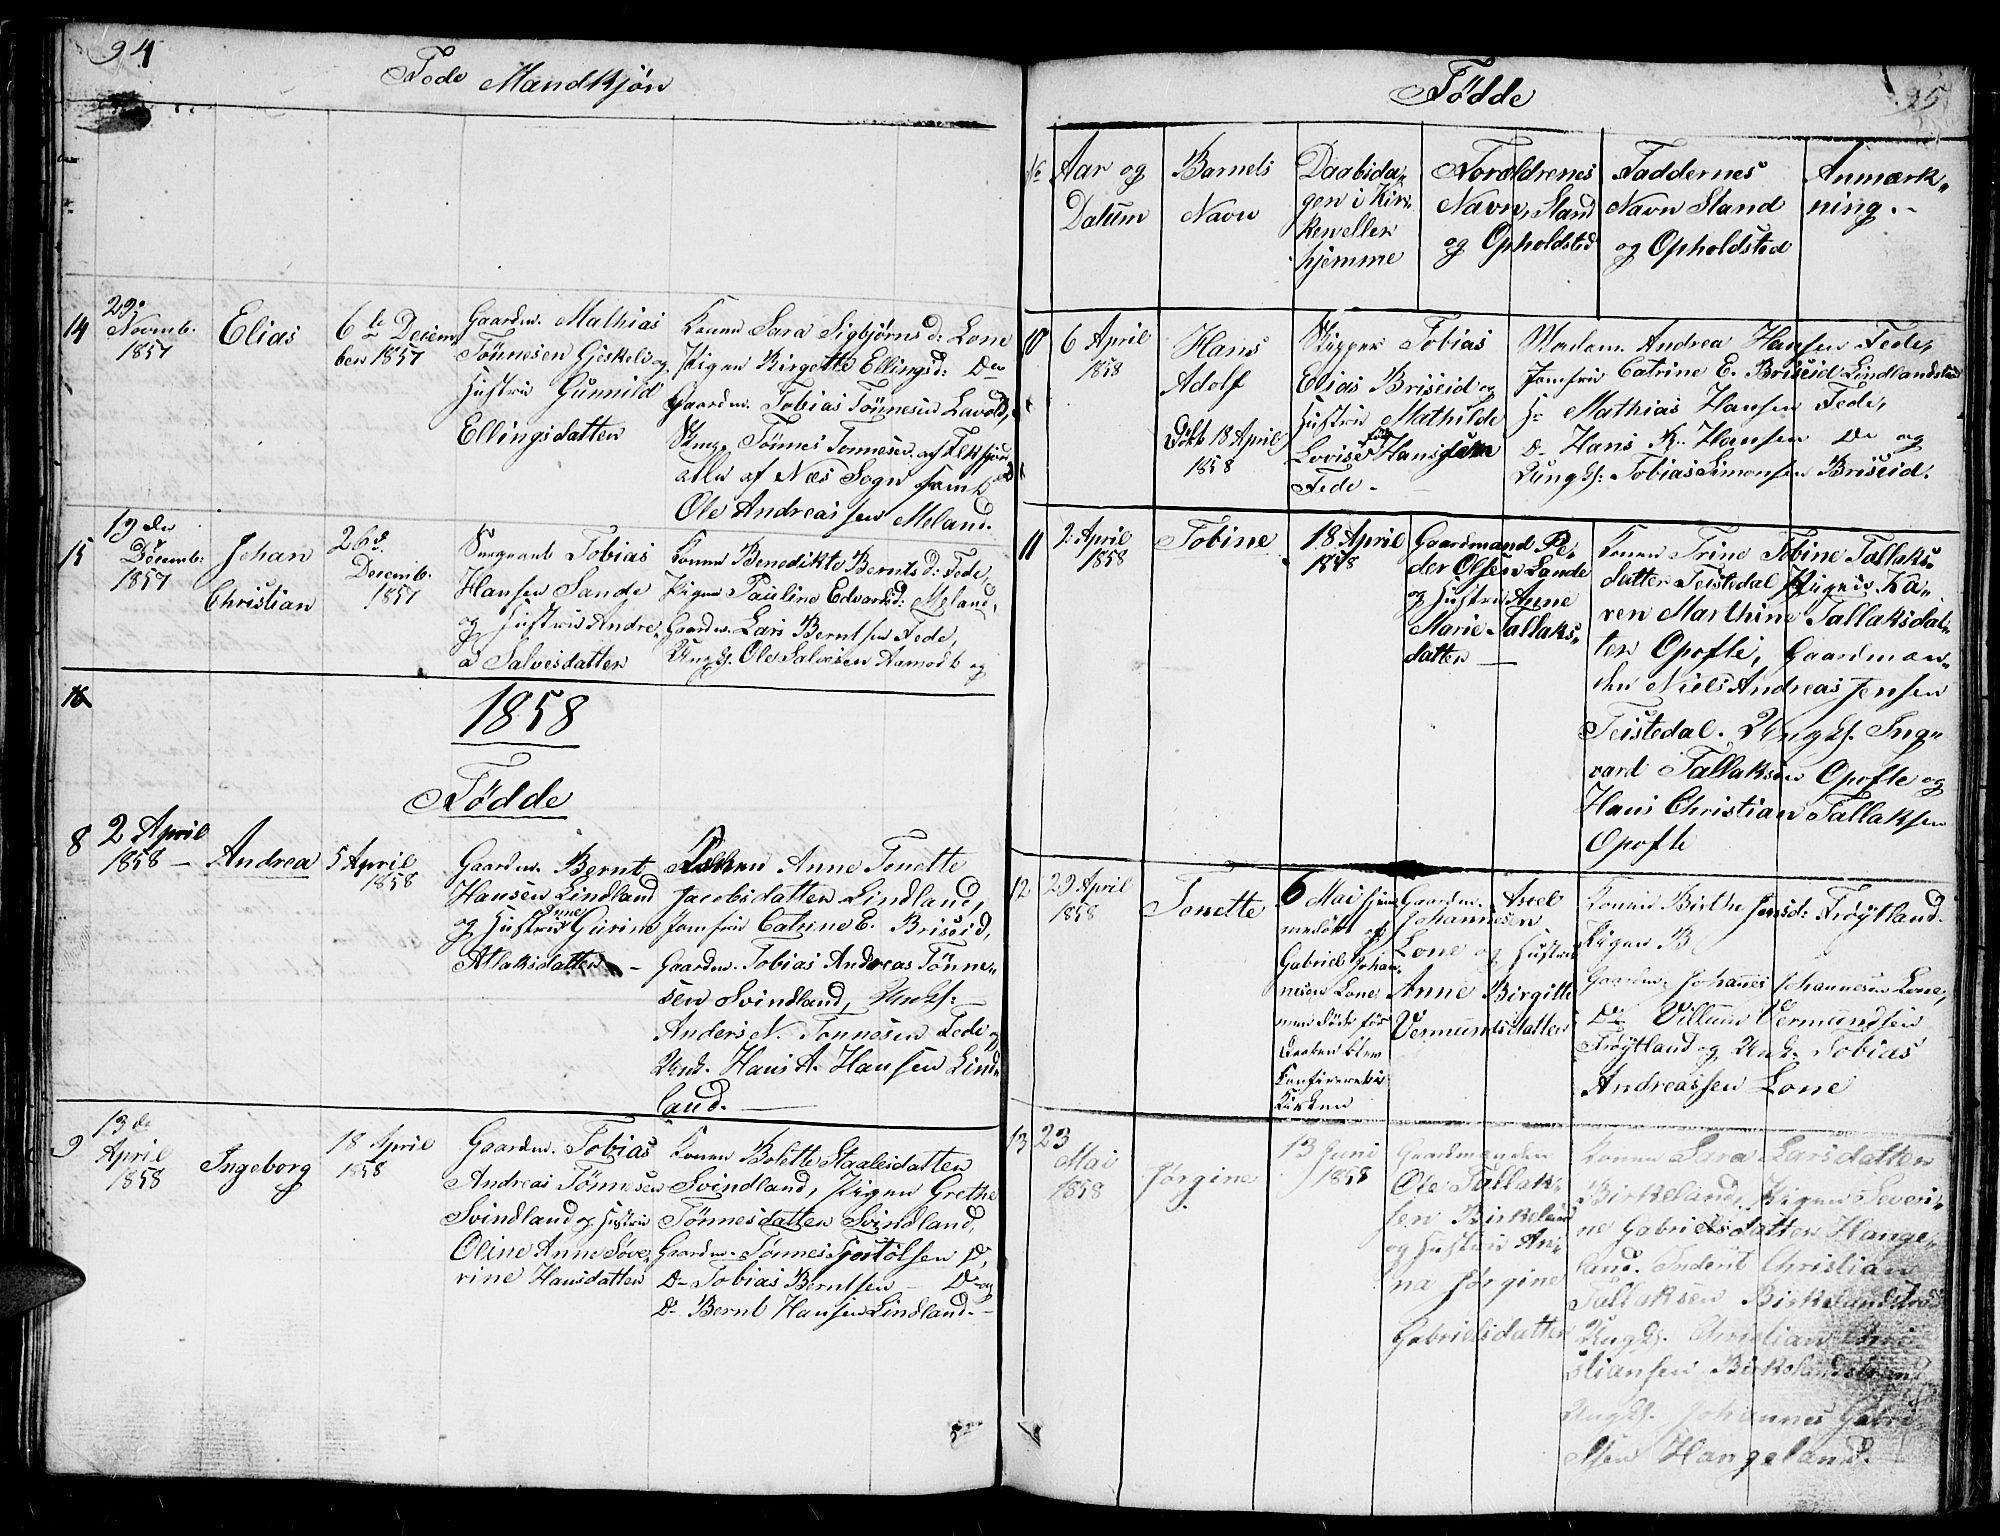 94
Fede Mandkjøn
14
22
Novemb.
1857
Elias
6te Decem
ber 1857
Gaardm. Mathias
Tönnesen Gjeskeli og
Hustru Gunnild
Ellingsdatter
Konen Sara Sigbjørnsd: Lone
Pigen Birgette Ellingsd: Do
Gaardm. Tobias Tönnesen Lavold,
Ungk. Tønnes Tonnesen af
alle af Næs Sogn samt
Ole Andreassen Meland.
15
19de
Decemb:
1857
Johan
Christian
26de
Decemb.
1857
Sergeant Tobias
Hansen Sande
og Hustru Andre„
a Salvesdatter
Konen Benedikte Berntsd: Fede,
Pigen Pauline Edvardsd: Meland,
Gaardm. Lars Berntsen Fede,
Ungk. Ole Salvesen Aamodt og
16
1858
Fødde
8
2 April
1858 —
Andrea
5 April
1858
Gaardm. Bernt
Hansen Lindland
og Hustru Anne Gurine
Atlaksdatter —
Konen Anne Tonette
Jacobsdatter Lindland,
Jomfru Catrine E. Briseid,
Gaardm. Tobias Andreas Tönne„
sen Svindland, Ungk: —
Anders N. Tonnesen Fede og
Ungk. Hans A. Hansen Lind„
land. —
9
13de
April
1858
Ingeborg
18 April
1858
Gaardm. Tobias
Andreas Tönnesen
Svindland og Hustru
Oline Anne Søve„
rine Hansdatter
Konen Bolette Staalesdatter
Svindland, Pigen Grethe
Tönnesdatter Svindland,
Gaardm. Tønnes Tjostolsen Do,
Do Tobias Berntsen — Do og
Do Bernt Hansen Lindland. —
95
Fødde
No
Aar og
Datum
Barnets
Navn
Daabsda„
gen i Kir„
ken eller
hjemme
Foraldrenes
Navn, Stand
og Opholdsted
Faddernes
Navn Stand
og Opholdsted
Anmærk„
ning. —
10
6 April
1858
Hans
Adolf
Døbt 18 April
1858
Skipper Tobias
Elias Briseid og
Hustru Mathilde
Lovise født Hansen
Fede —
Madam. Andrea Hansen Fede,
Jomfru Catrine E. Briseid Lindlandsland
Hr Mathias Hansen Fede,
Do Hans R. Hansen Do og
Ungk: Tobias Simonsen Briseid.
11
2 April
1858
Tobine
18 April
1858
Gaardmand Pe„
der Olsen Sande
og Hustru Anne
Marie Tallaks„
datter —
Konen Trine Tobine Tallaks„
datter Teistedal, Pigen Ka„
ren Marthine Tallaksdat„
ter Opofte, Gaardman„
den Niels Andreas Jensen
Teistedal. Ungk. Ing„
vard Tallaksen Opofte og
Hans Christian Tallaksen
Opofte
12
29 April
1858
Tonette
6 Mai hjem„
medøbt af
Gabriel Johan„
nesen Lone,
men døde før
Daaben blev
Konfirmert i
Kirken
Gaardm. Axel
Johannesen
Lone og Hustru
Anne Birgitte
Vermundsdatter
Konen Birthe Jensd: Frøytland.
Pigen B
Gaardm. Johanes Johannesen Lone,
Do Villum Vermundsen
Frøytland og Ungk. Tobias
Andreassen Lone
13
23
Mai
1858
Jørgine
13 Juni
1858
Gaardmanden
Ole Tallak„
sen Birkeland
og Hustru An„
na Jørgine
Gabrielsdatter
Konen Sara Larsdatter
Birkeland, Pigen Severi„
ne Gabrielsdatter Hange„
land. Inderst Christian
Tallaksen Birkelandstrand
Ungk. Christian Chri
stiansen Birkelandstrand
Ungk. Johannes Gabri
elsen Hangeland.